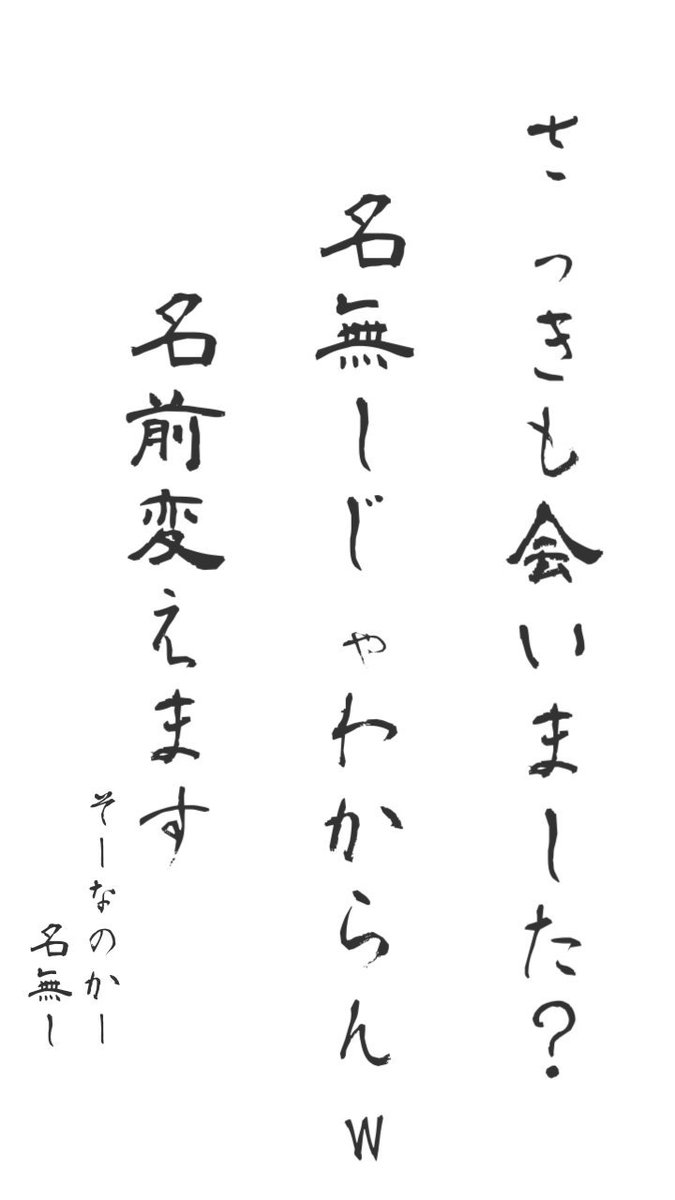 さっきも会いました？
名無しじゃわからんｗ
名前変えます
そーなのかー
名無し